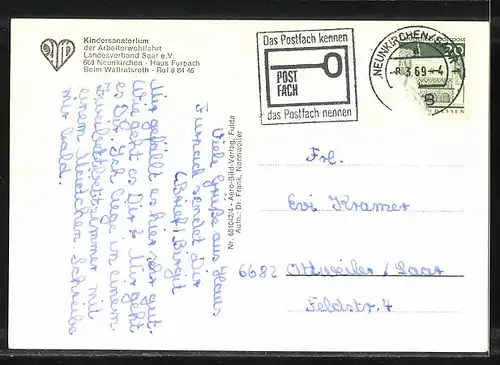 Kindersanatorium
der Arbeiterwohlfahrt
Landesverband Saar e.V.
668 Neunkirchen - Haus Furpach
Beim Wallratsroth - Ruf 8 64 46
Das Postfach kennen
POST
FACH
das Postfach nennen
NEUNKIRCHEN (SAAR)
3.69
8
20
HESSEN
Viele Grüße aus Haus
Furpach sendet Dir
Birgit
Mir gefällt es hier sehr gut.
Wie geht es Dir? Mir geht
es Ich liege in einem
Zweibettbettzimmer mit
einem Mädchen. Schreibe
mir bald.
Nr. 681042/4 - Aero-Bild-Verlag, Fulda
Aufn.: Dr. Frank, Nennweiler
Frl.
Evi Kramer
6682 Ottweiler/Saar
Feldstr. 4